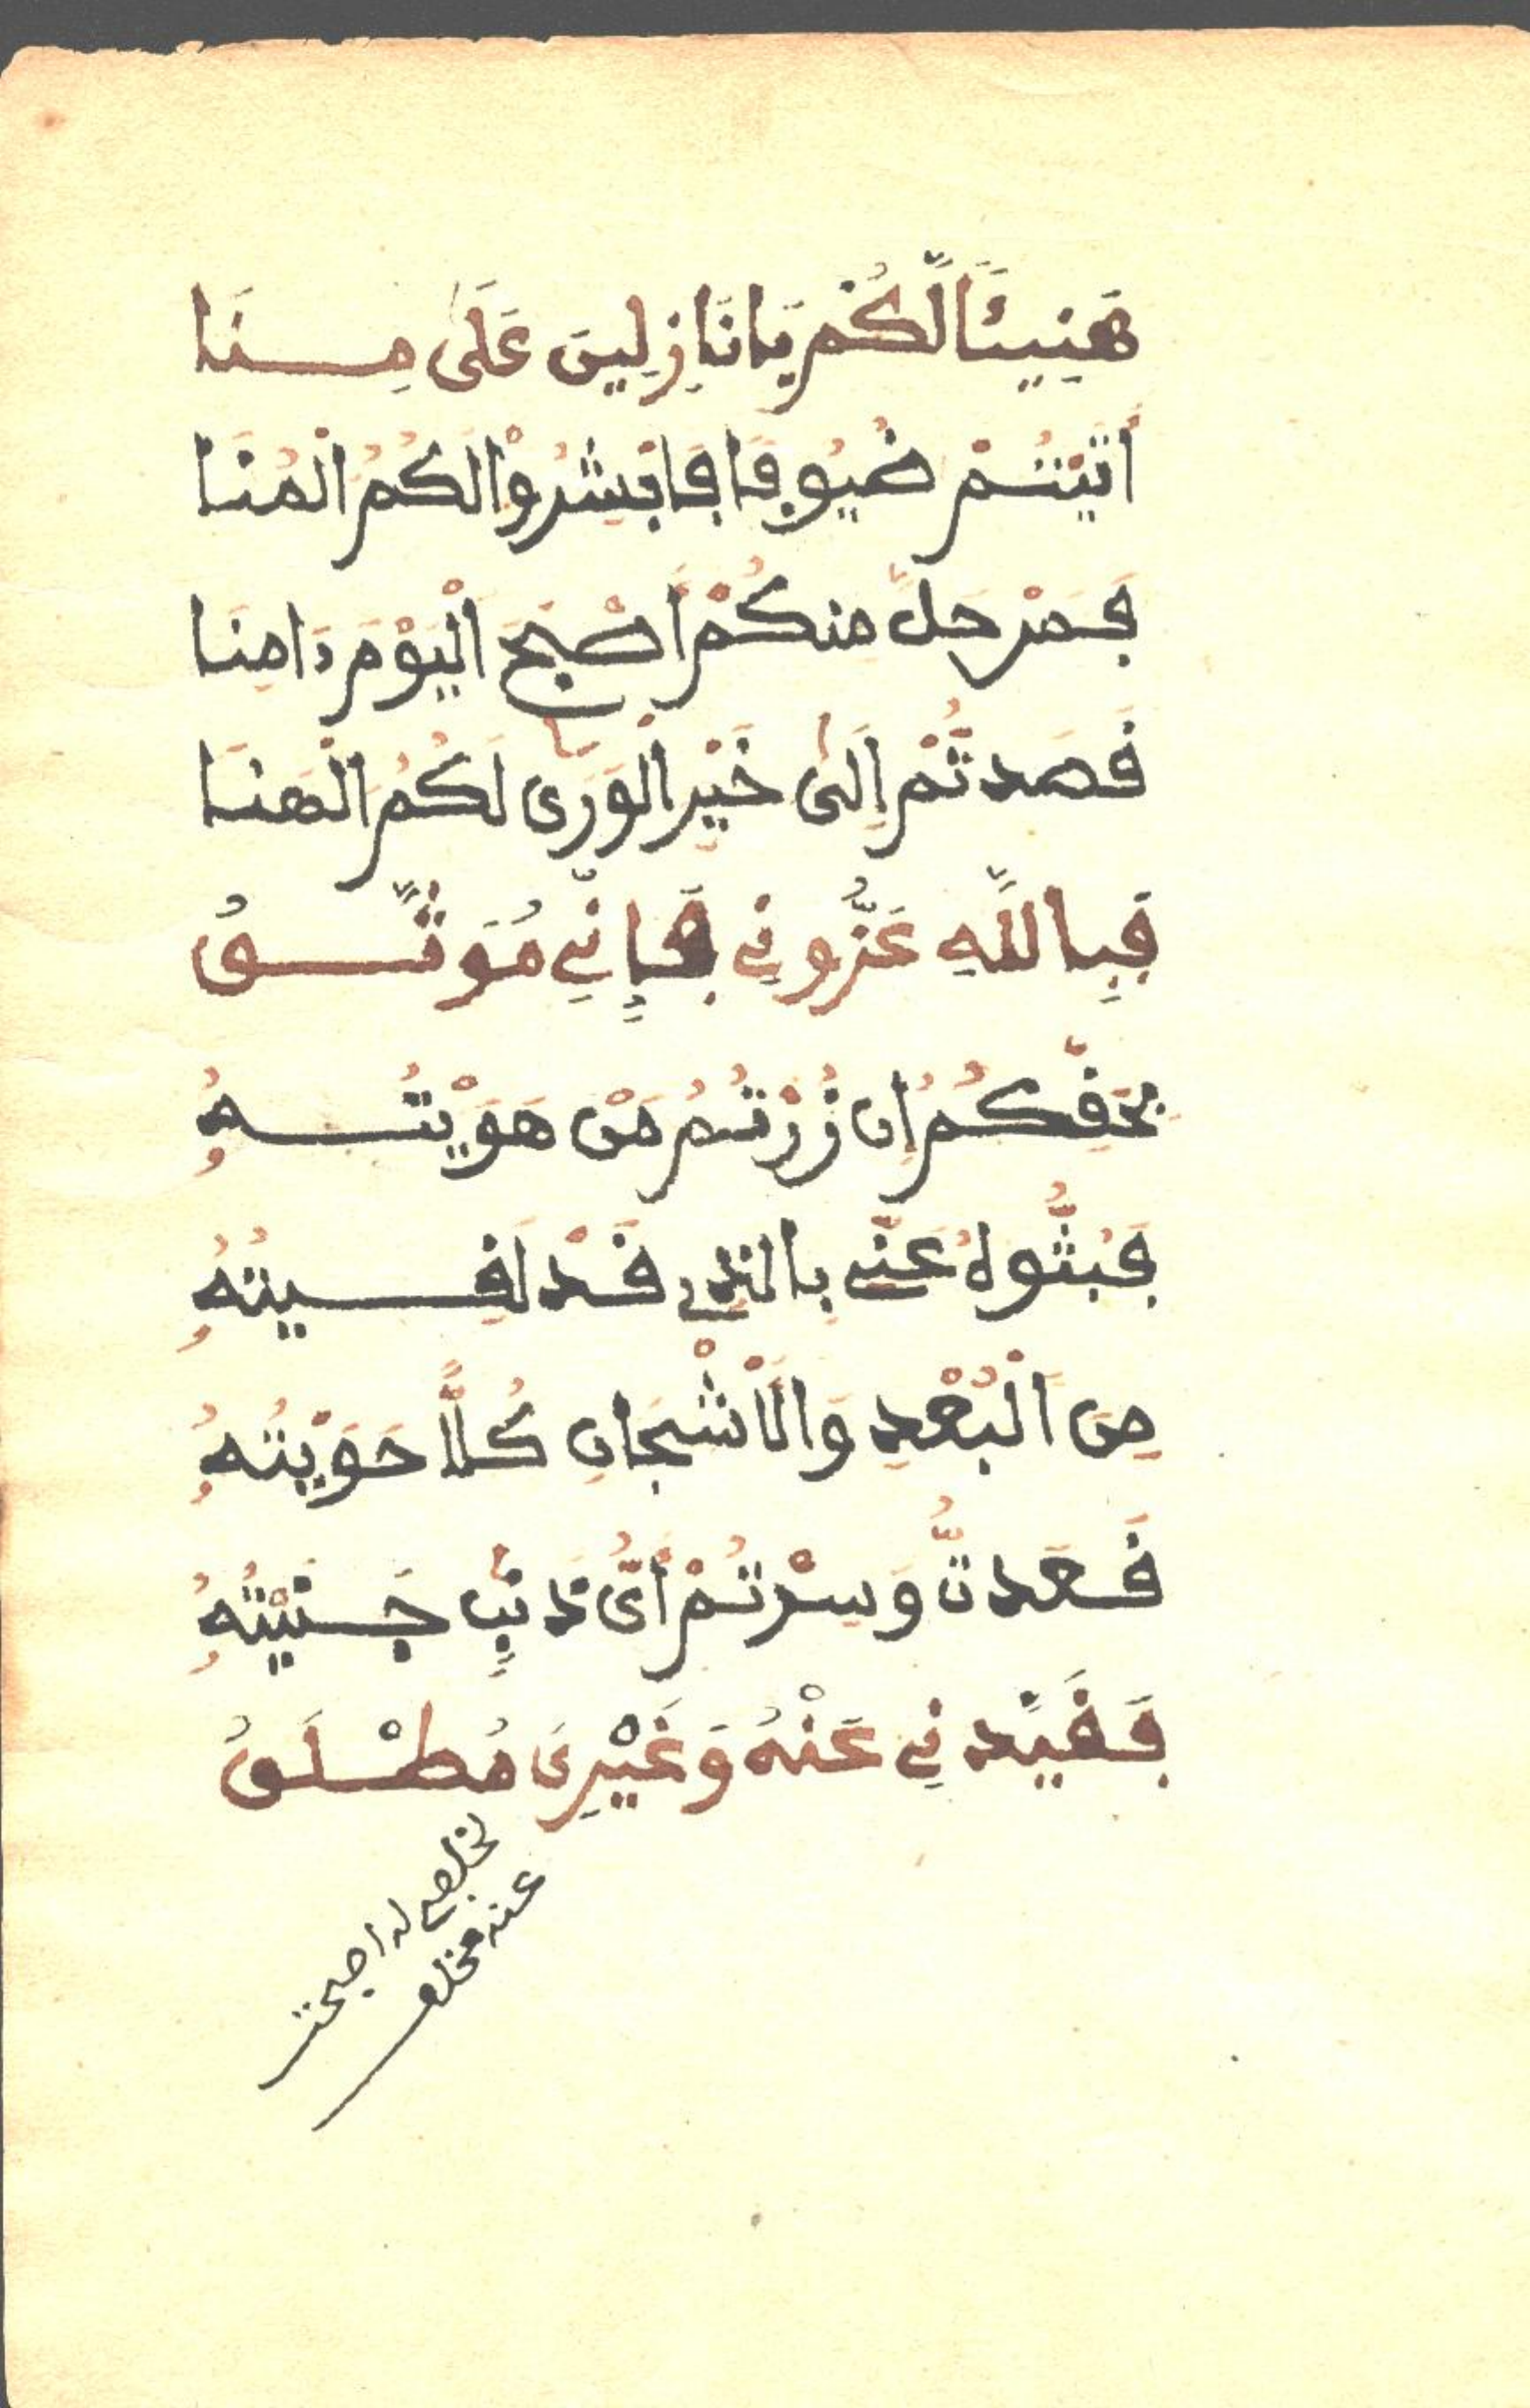 هَنِيئًا لَّكُم يَا نَازِلِينَ عَلَى مِنَا
أَتَيْتُمْ ضُيُوفًا فَابْشُرُوْا لَكُمُ الْمُنَا
فَمَنْ حَلَّ مِنكُمْ أَصْبَحَ الْيَوْمَ ءَامِنَا
قَصَدتُّمْ إِلَىٰ خَيْرِ الْوَرَىٰ لَكُمُ الْهَنَا
فَبِاللَّهِ عَزُّونِي فَإِنِّي مُوَثَّقُ
بِحَقِّكُمُ إِن زُرْتُمُ مَنْ هَوَيْتُهُ
فَبُثُّوا لَهُ عَنِّي بِالذِي قَدْ لَقِيتُهُ
مِنَ الْبُعْدِ وَالْأَشْجَانِ كُلًّا حَوَيْتُهُ
قَعَدتُّ وَسِرْتُمْ أَيُّ ذَنْبٍ جَنَيْتُهُ
فَقَيَّدنِي عَنْهُ وَغَيْرِي مُطْلَقُ